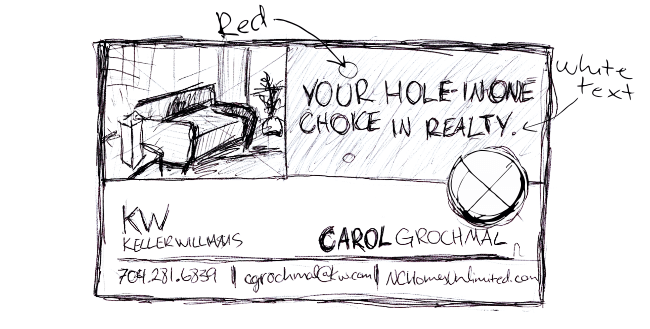 Red
White
text
YOUR HOLE-IN-ONE
CHOICE IN REALTY.
KW
KELLER WILLIAMS
CAROL GROCHMAL
704.281.6839 | cgrochmal@kw.com | NCHomesUnlimited.com